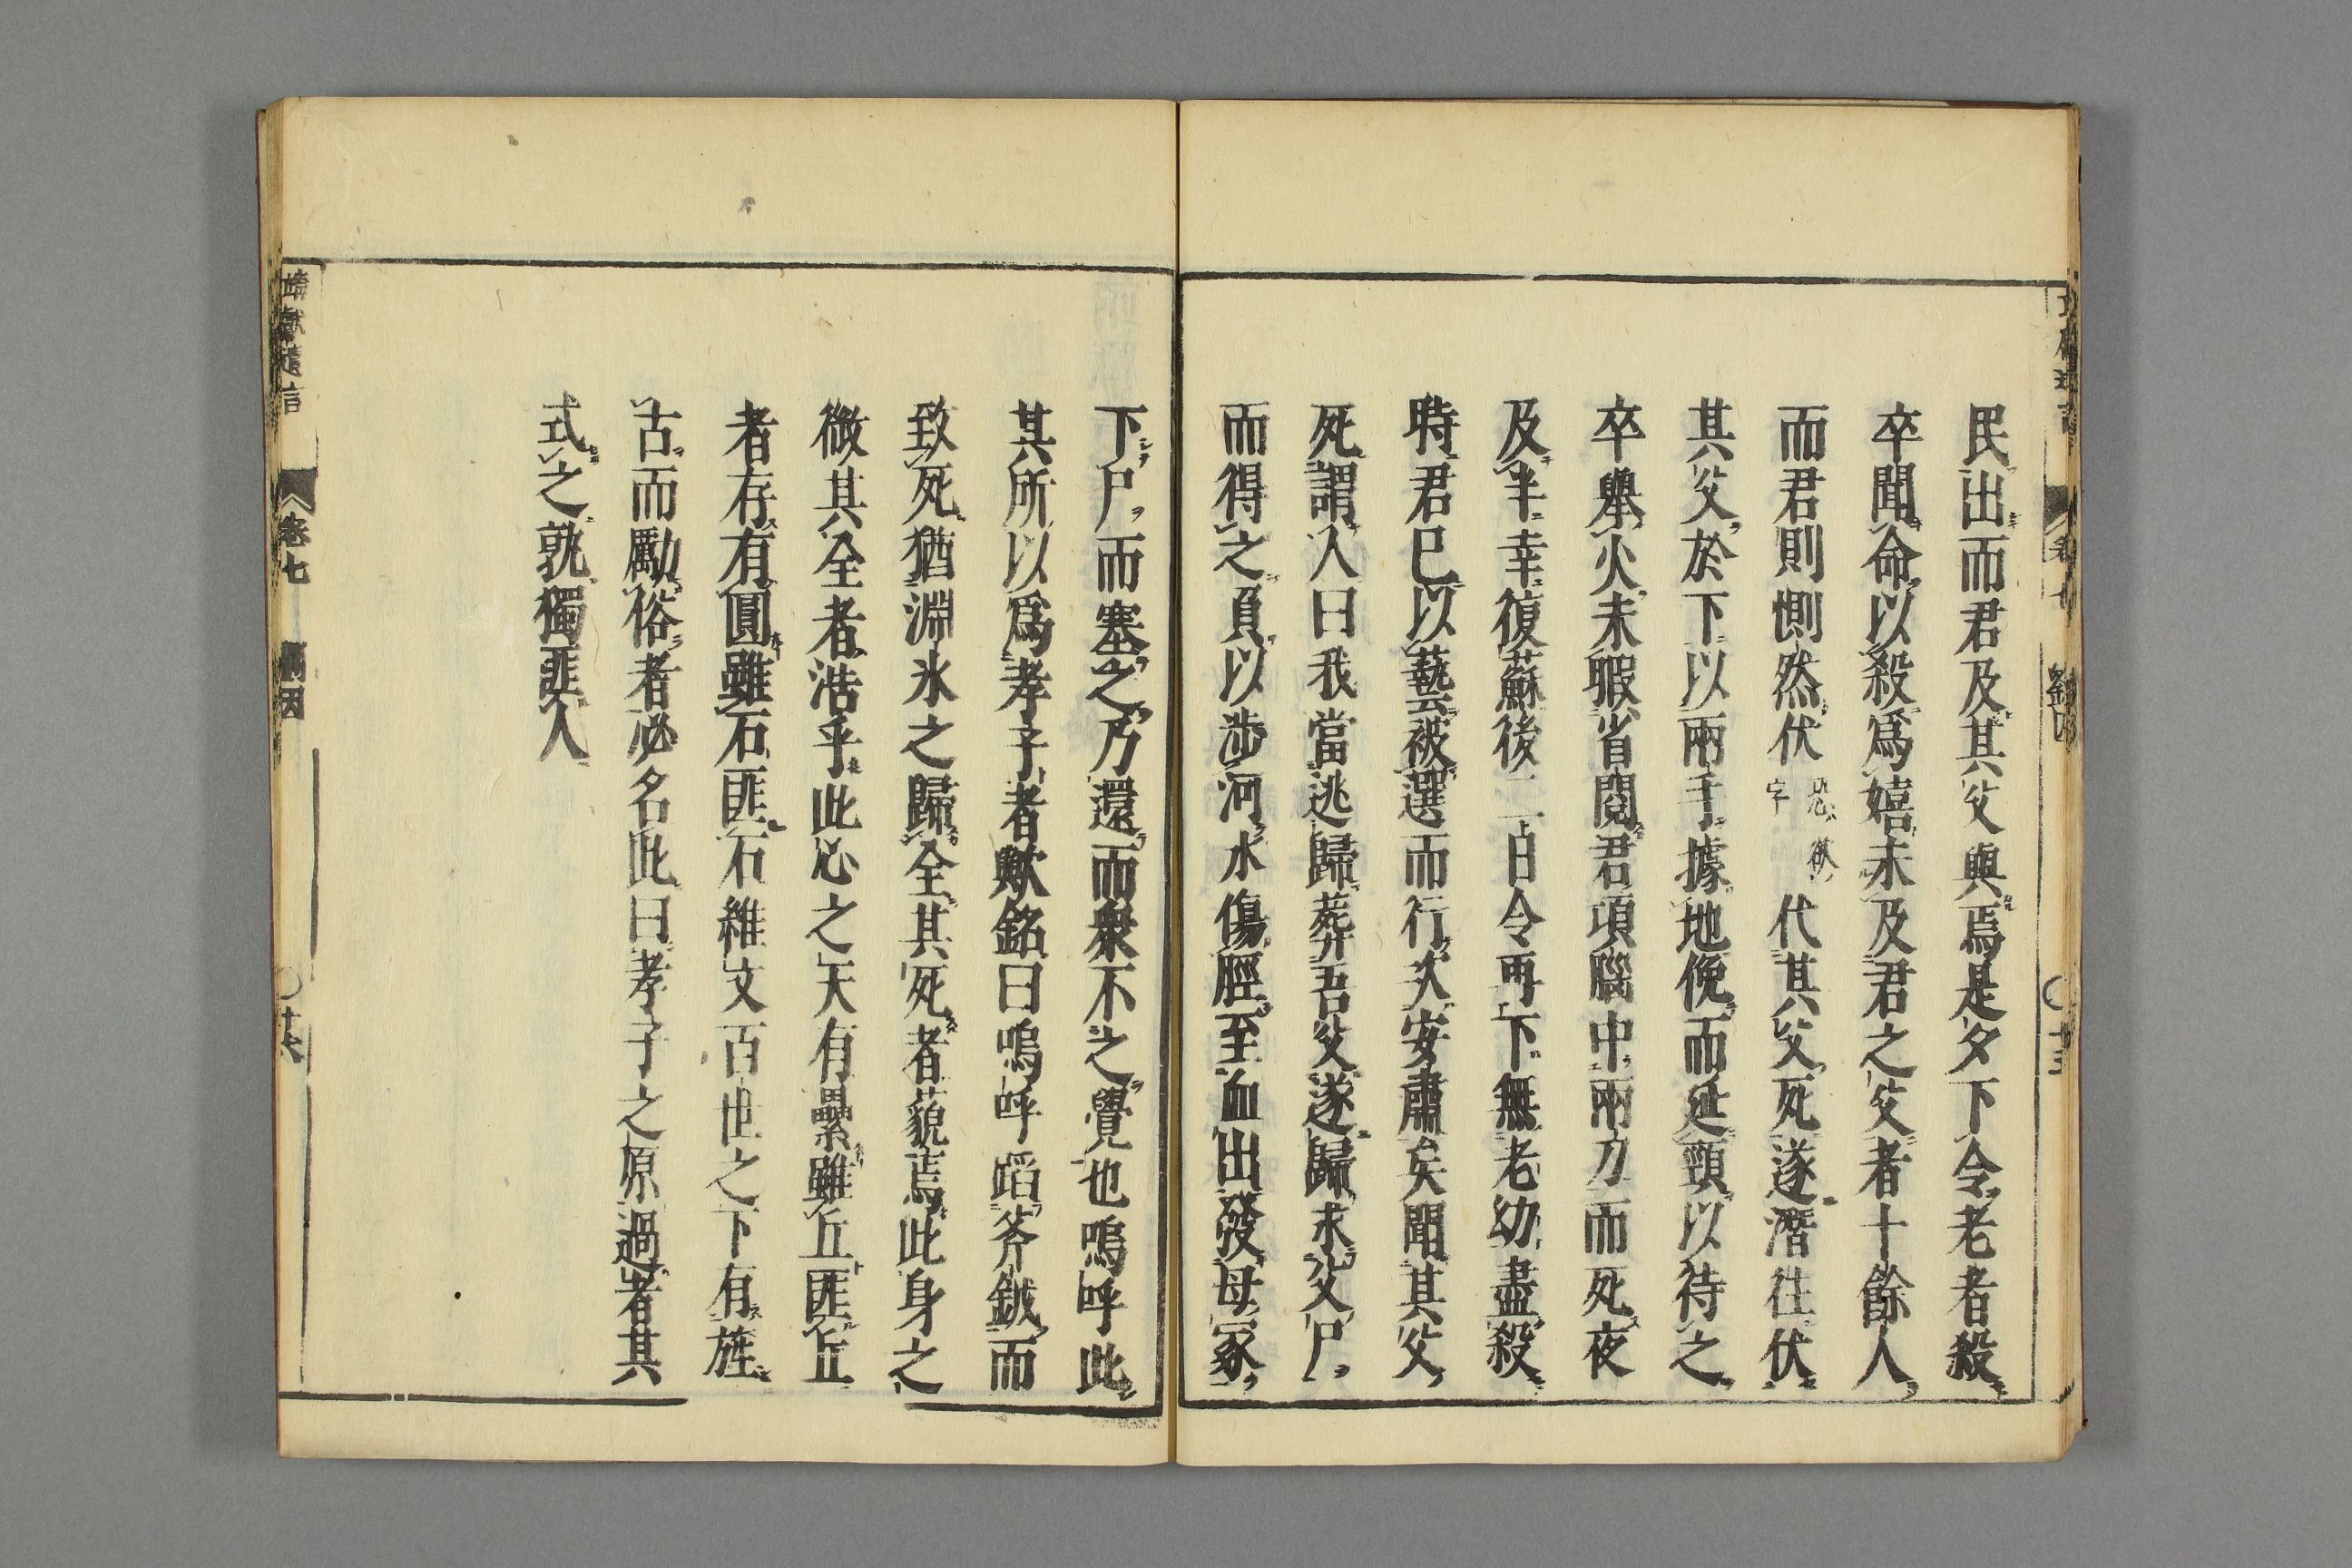 民出而君及其父與焉是夕下令老者殺
卒聞命以殺爲嬉未及君之父者十餘人
而君則惻然伏恐欲字代其父死遂潛往伏
其父於下以兩手據地俛而延頸以待之
卒舉火未暇省閱君項腦中兩刀而死夜
及半幸復蘇後二日令再下無老幼盡殺
時君已以藝被選而行次安肅矣聞其父
死謂人曰我當逃歸葬吾父遂歸求父尸
而得之負以涉河水傷脛至血出發母冢
下尸而塞之乃還而衆不之覺也嗚呼此
其所以爲孝子者歟銘曰嗚呼蹈斧鉞而
致死猶淵氷之歸全其死者藐焉此身之
微其全者浩乎此心之天有纍雖丘匪丘
者存有圓雖石匪石維文百世之下有旌
古而勵俗者必名此曰孝子之原過者其
式之孰獨匪人
靖獻遺言
卷七
劉因